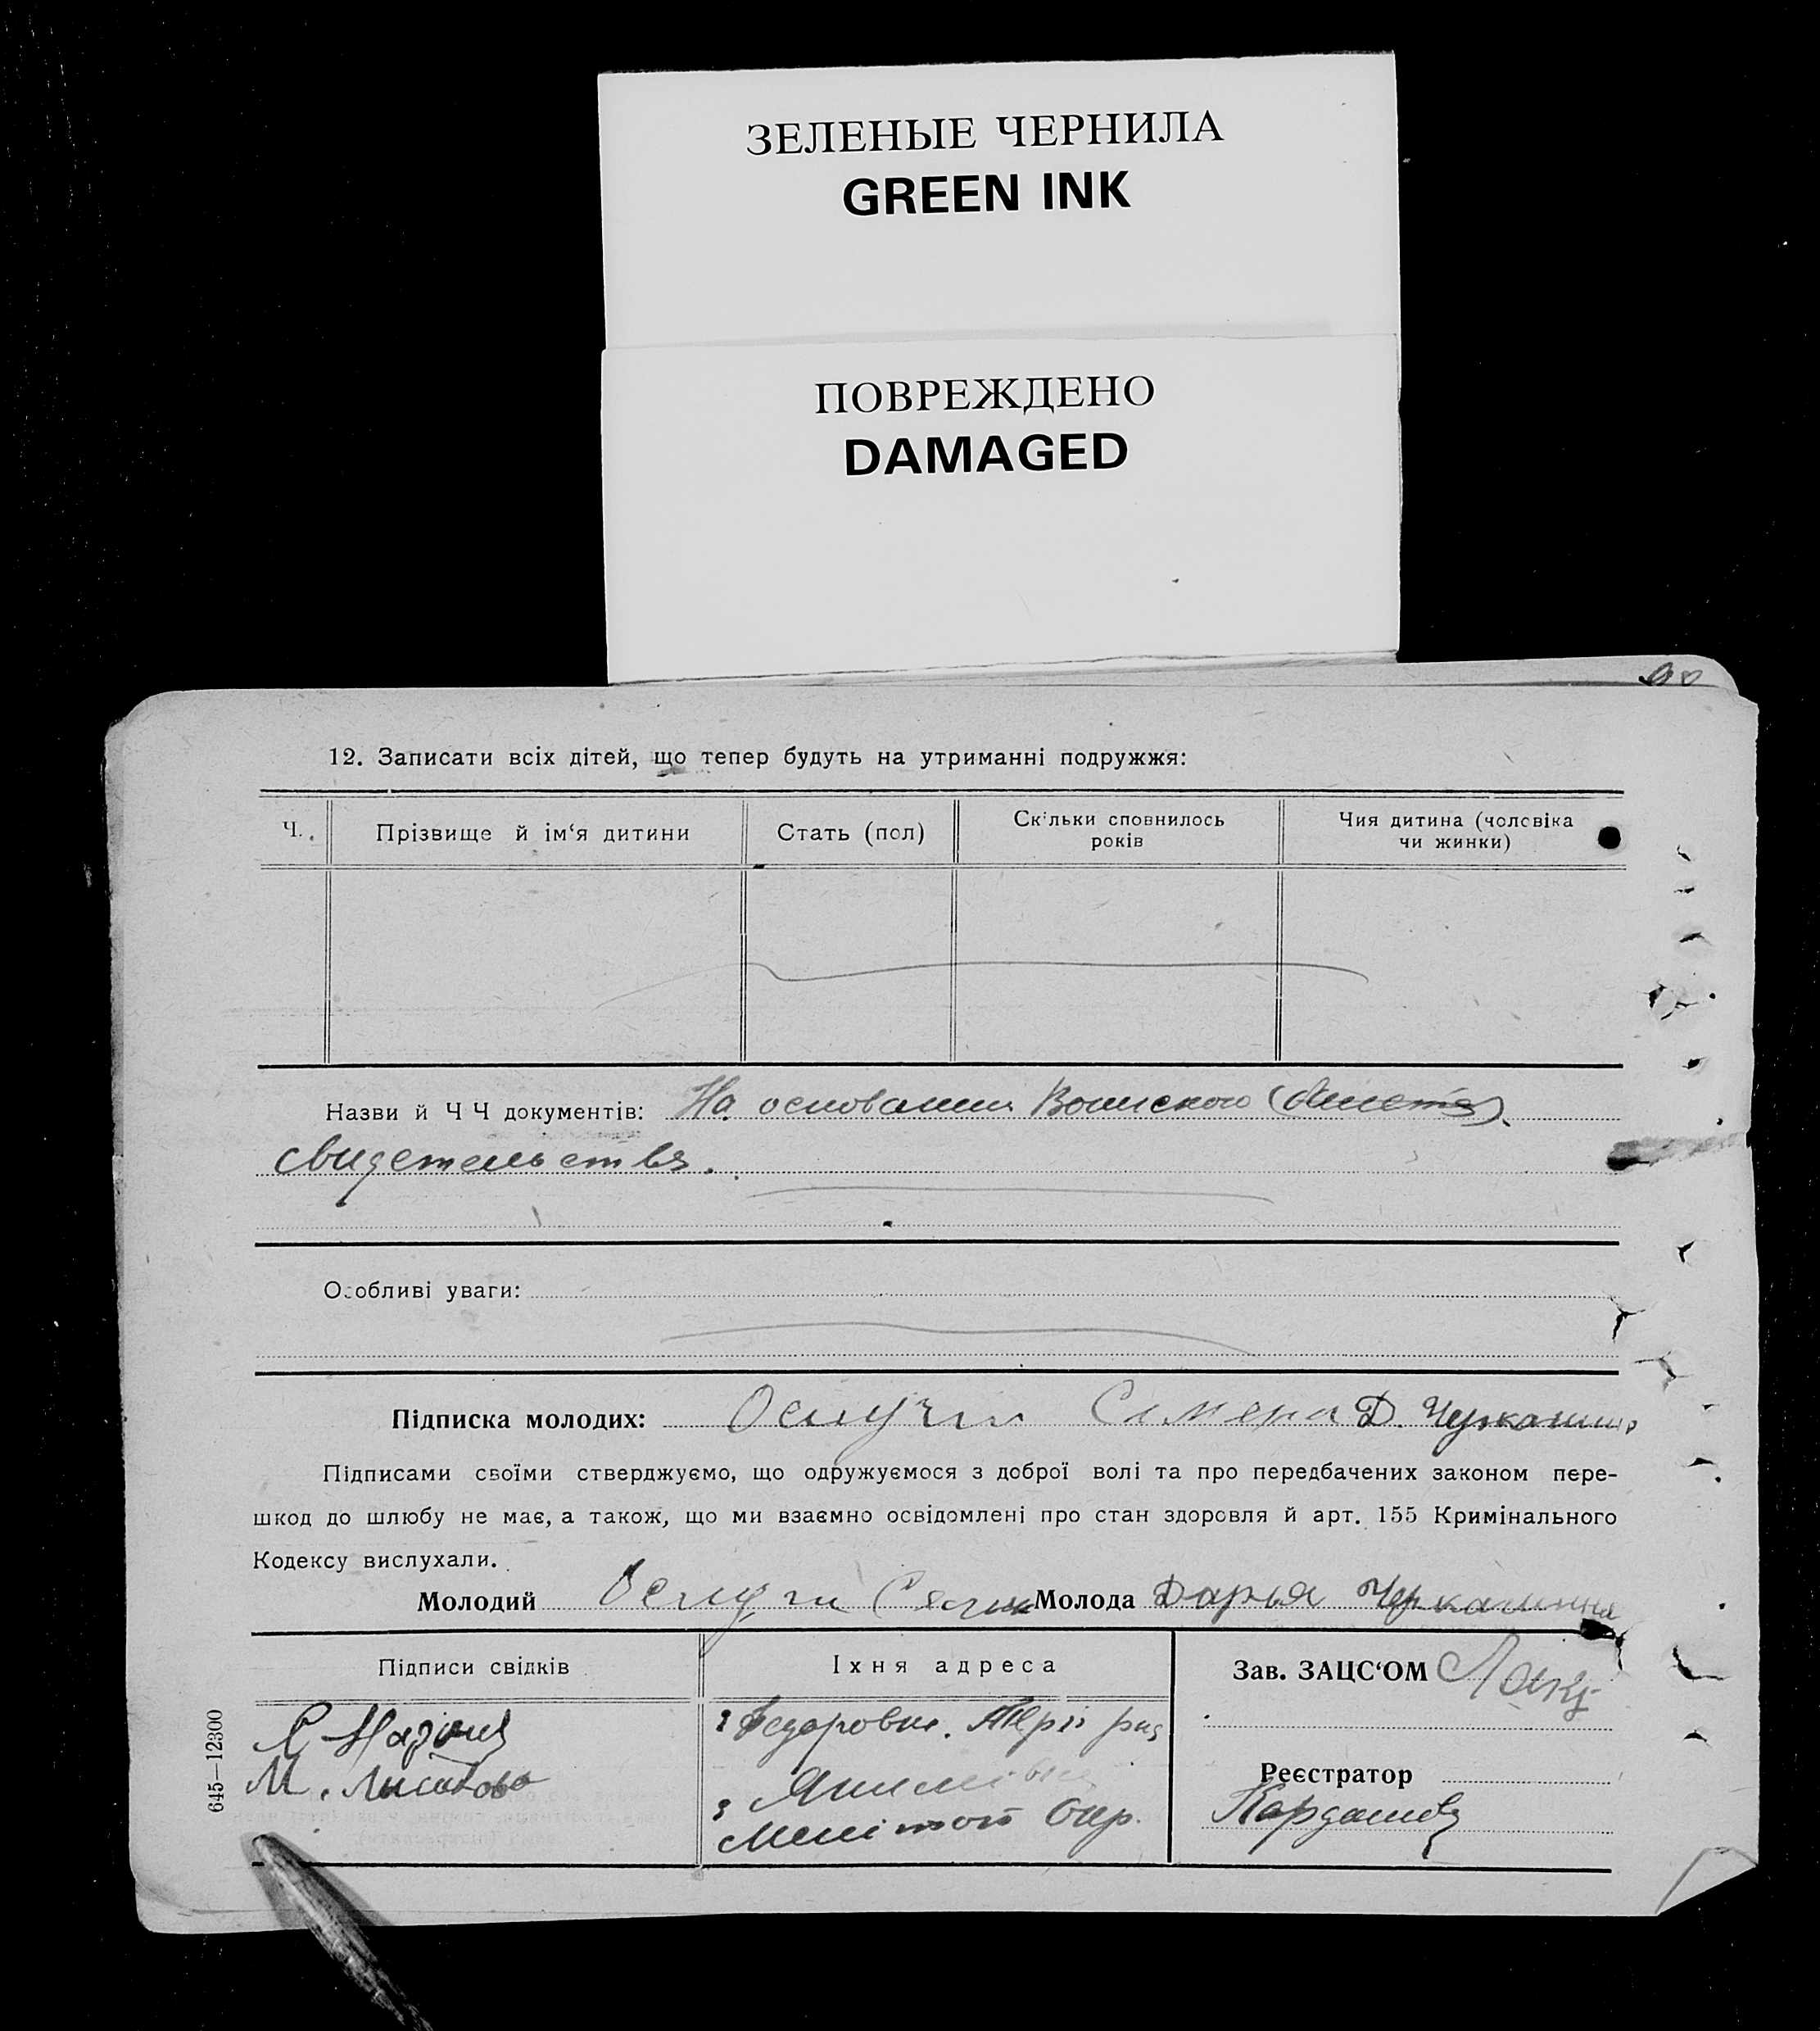 ЗЕЛЕНЫЕ ЧЕРНИЛА
GREEN INK
ПОВРЕЖДЕНО
DAMAGED
12. Записати всіх дітей, що тепер будуть на утриманні подружжя:
Ч.
Прізвище й ім‘я дитини
Стать (пол)
Скільки сповнилось
років
Чия дитина (чоловіка
чи жинки)
Назви й Ч Ч документів: На основании Воинского (билета)
свидетельства.
Особливі уваги:
Підписка молодих: Д. Черкашина
Підписами своїми стверджуємо, що одружуємося з доброї волі та про передбачених законом пере-
шкод до шлюбу не має, а також, що ми взаємно освідомлені про стан здоровля й арт. 155 Кримінального
Кодексу вислухали.
Молодий
Молода Дарья Черкашина
Підписи свідків
Їхня адреса
Зав. ЗАЦС‘ОМ
М.
Реєстратор
645—12300